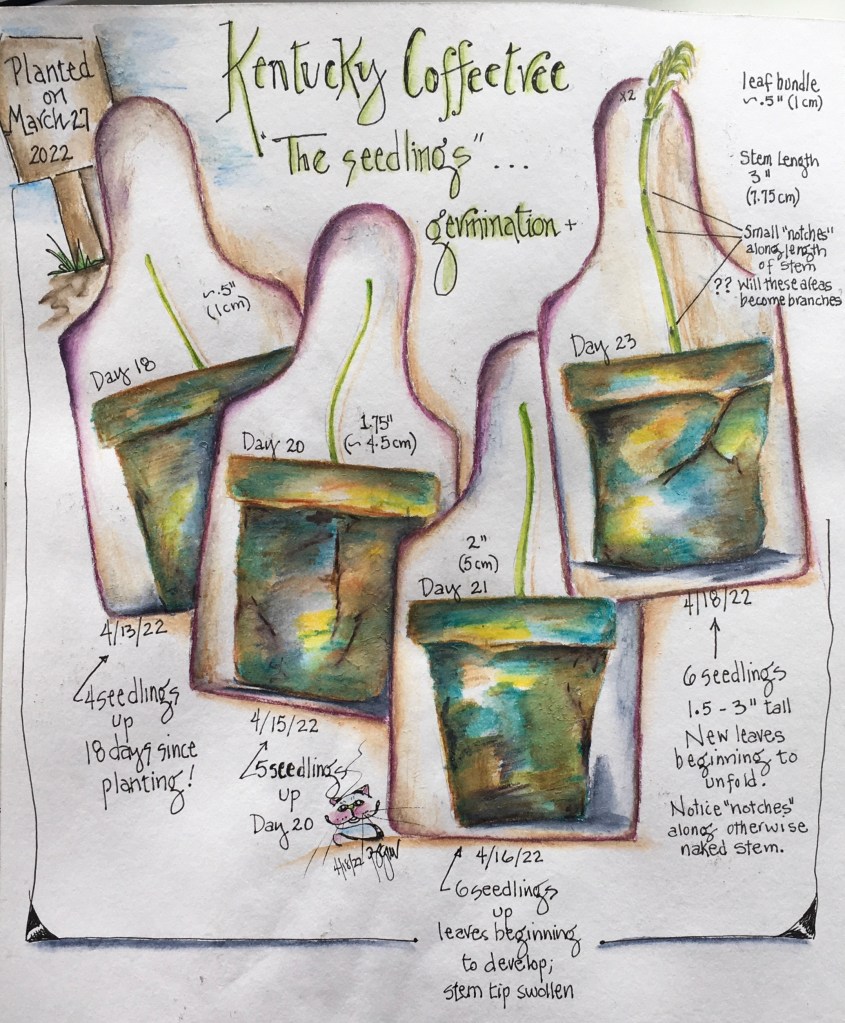 Kentucky Coffeetree
"The seedlings"...
germination +
Planted
on
March 27
2022
~.5"
(1cm)
Day 18
4/13/22
4 seedlings
up
18 days since
planting!
1.75"
(~4.5cm)
Day 20
4/15/22
5 seedlings
up
Day 20
4/18/22
2"
(5cm)
Day 21
4/16/22
6 seedlings
up
leaves beginning
to develop;
stem tip swollen
x2
leaf bundle
~.5" (1cm)
Stem Length
3"
(7.75cm)
Small "notches"
along length
of stem
?? Will these areas
become branches
Day 23
4/18/22
6 seedlings
1.5 - 3" tall
New leaves
beginning to
unfold.
Notice "notches"
along otherwise
naked stem.